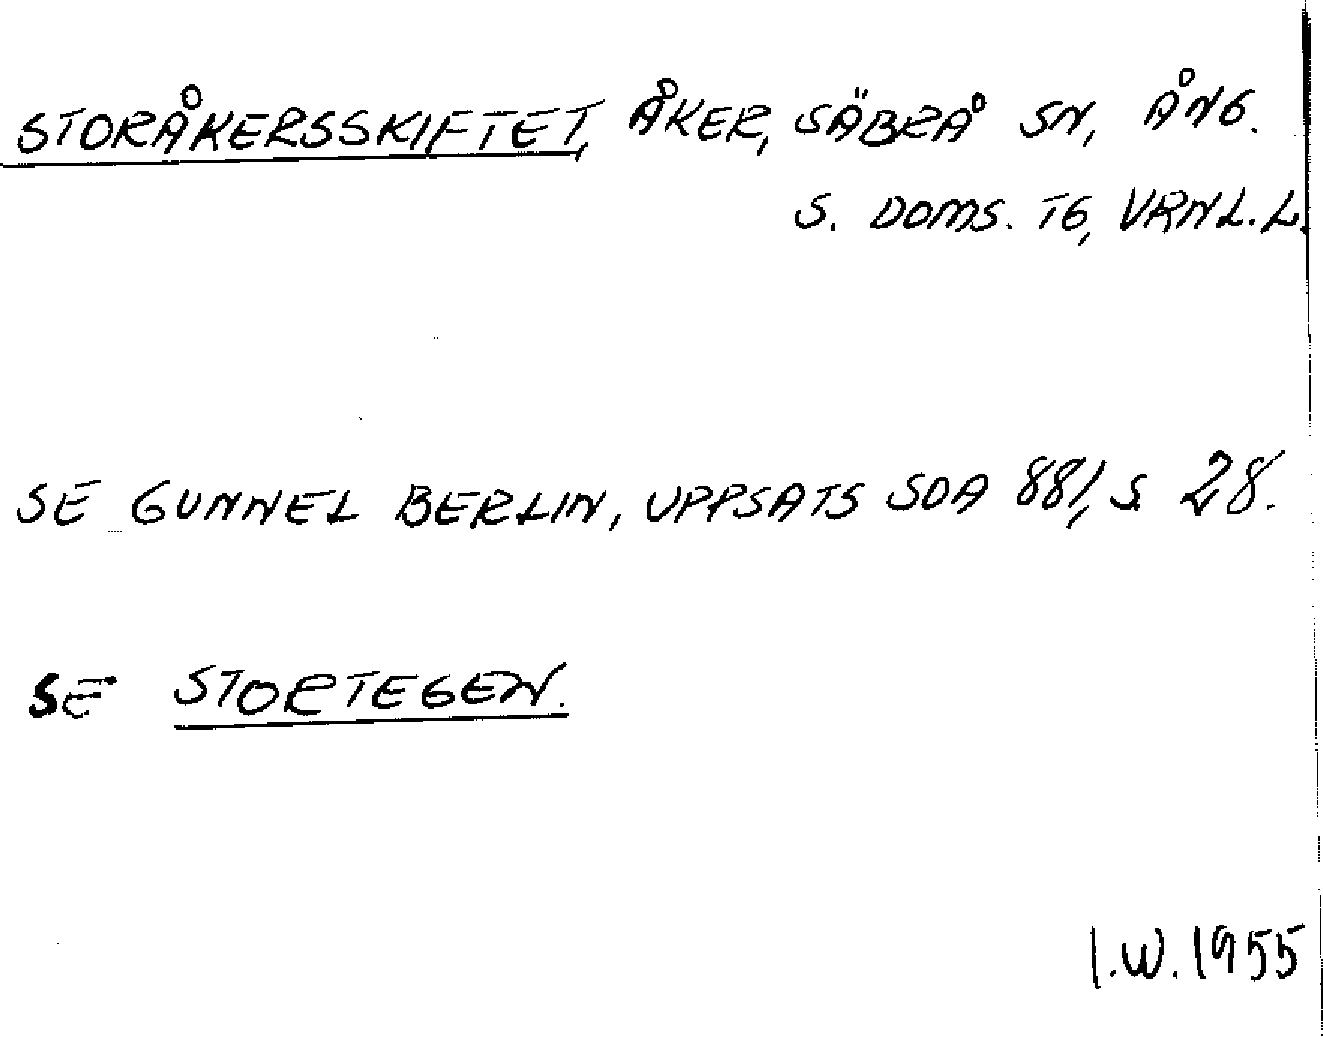 STORÅKERSSKIFTET, ÅKER, SÄBRÅ SN, ÅNG.
S. DOMS. TG, VRNL. L.
SE GUNNEL BERLIN, UPPSATS SOA 881, S 28.
SE STORTEGEN.
I.W. 1955